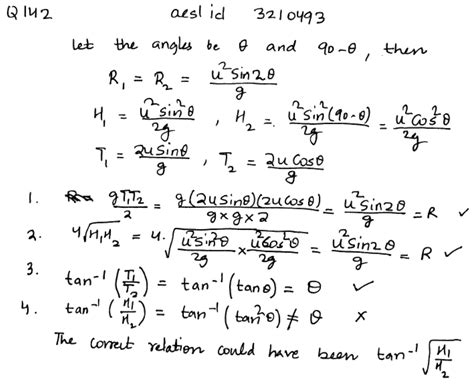 Q142 aesl id 3210493
let the angles be θ and 90-θ, then
R₁ = R₂ = u²sin2θ/g
H₁ = u²sin²θ/2g , H₂ = u²sin²(90-θ)/2g = u²cos²θ/2g
T₁ = 2usinθ/g , T₂ = 2ucosθ/g
1. gT₁T₂/2 = g(2usinθ)(2ucosθ)/g×g×2 = u²sin2θ/g = R ✓
2. 4√H₁H₂ = 4.√(u²sin²θ/2g × u²cos²θ/2g) = u²sin2θ/g = R ✓
3. tan⁻¹(T₁/T₂) = tan⁻¹(tanθ) = θ ✓
4. tan⁻¹(H₁/H₂) = tan⁻¹(tan²θ) ≠ θ ×
The correct relation could have been tan⁻¹√(H₁/H₂)